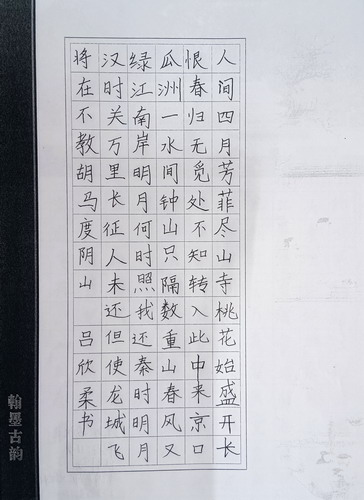 人间四月芳菲尽山寺桃花始盛开长
恨春归无觅处不知转入此中来京口
瓜洲一水间钟山只隔数重山春风又
绿江南岸明月何时照我还秦时明月
汉时关万里长征人未还但使龙城飞
将在不教胡马度阴山 吕欣柔书
翰墨古韵